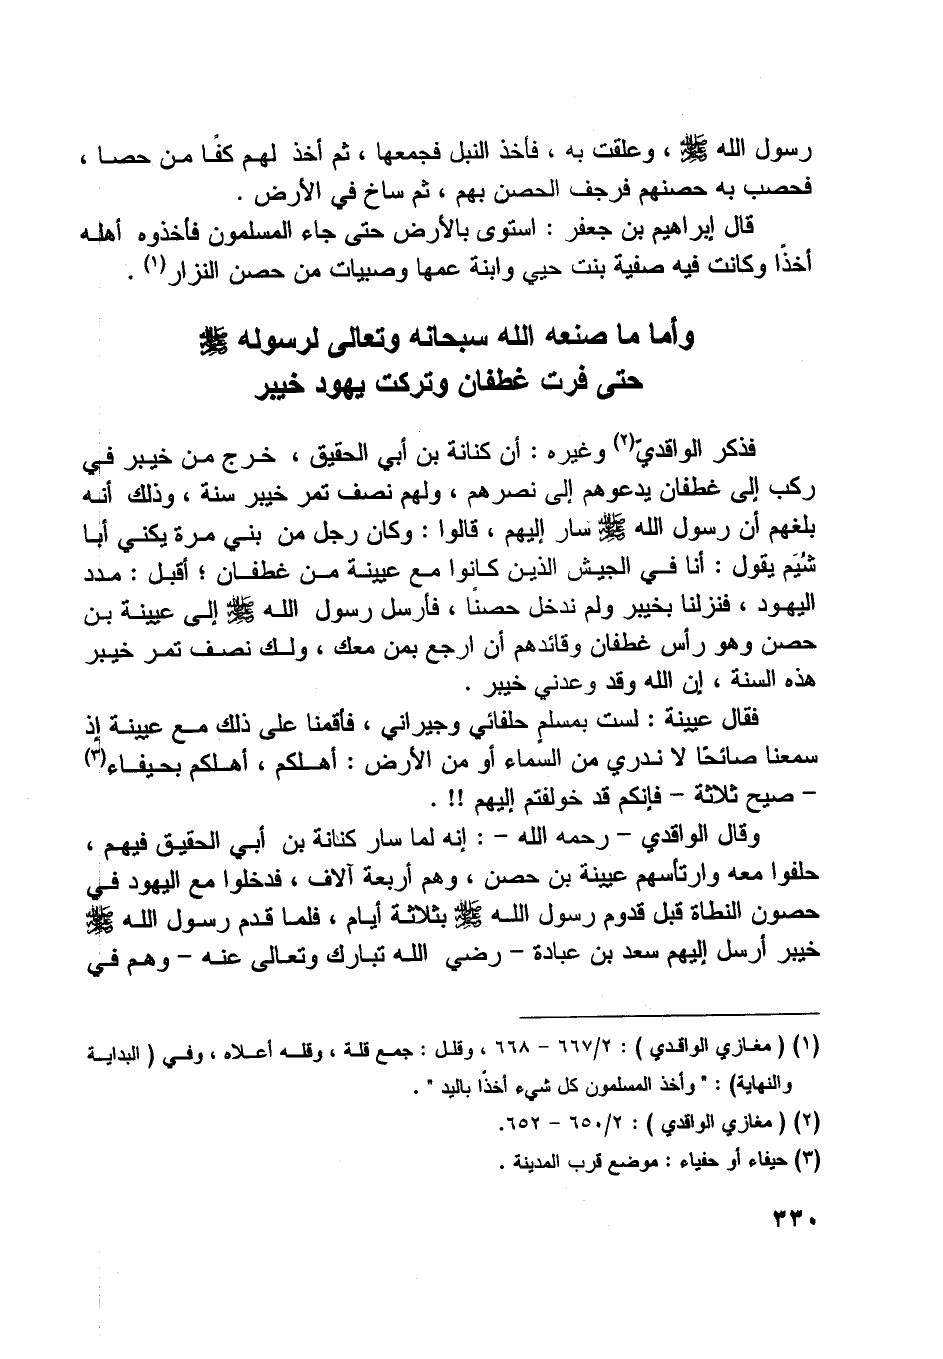 رسول الله ﷺ ، وعلقت به ، فأخذ النبل فجمعها ، ثم أخذ لهم كفًا من حصا ،
فحصب به حصنهم فرجف الحصن بهم ، ثم ساخ في الأرض .
قال إبراهيم بن جعفر : استوى بالأرض حتى جاء المسلمون فأخذوه أهله
أخذًا وكانت فيه صفية بنت حيي وابنة عمها وصبيات من حصن النزار(١) .
وأما ما صنعه الله سبحانه وتعالى لرسوله ﷺ
حتى فرت غطفان وتركت يهود خيبر
فذكر الواقديّ(٢) وغيره : أن كنانة بن أبي الحقيق ، خرج من خيبر في
ركب إلى غطفان يدعوهم إلى نصرهم ، ولهم نصف تمر خيبر سنة ، وذلك أنه
بلغهم أن رسول الله ﷺ سار إليهم ، قالوا : وكان رجل من بني مرة يكني أبا
شُيَم يقول : أنا في الجيش الذين كانوا مع عيينة من غطفان ؛ أقبل : مدد
اليهود ، فنزلنا بخيبر ولم ندخل حصنًا ، فأرسل رسول الله ﷺ إلى عيينة بن
حصن وهو رأس غطفان وقائدهم أن ارجع بمن معك ، ولك نصف تمر خيبر
هذه السنة ، إن الله وقد وعدني خيبر .
فقال عيينة : لست بمسلمٍ حلفائي وجيراني ، فأقمنا على ذلك مع عيينة إذ
سمعنا صائحًا لا ندري من السماء أو من الأرض : أهلكم ، أهلكم بحيفاء(٣)
– صيح ثلاثة – فإنكم قد خولفتم إليهم !! .
وقال الواقدي – رحمه الله – : إنه لما سار كنانة بن أبي الحقيق فيهم ،
حلفوا معه وارتأسهم عيينة بن حصن ، وهم أربعة آلاف ، فدخلوا مع اليهود في
حصون النطاة قبل قدوم رسول الله ﷺ بثلاثة أيام ، فلما قدم رسول الله ﷺ
خيبر أرسل إليهم سعد بن عبادة – رضي الله تبارك وتعالى عنه – وهم في
(١) ( مغازي الواقدي ) : ٦٦٧/٢ – ٦٦٨ ، وقلل : جمع قلة ، وقله أعلاه ، وفي ( البداية
والنهاية) : " وأخذ المسلمون كل شيء أخذًا باليد " .
(٢) ( مغازي الواقدي ) : ٦٥٠/٢ – ٦٥٢.
(٣) حيفاء أو حفياء : موضع قرب المدينة .
٣٣٠